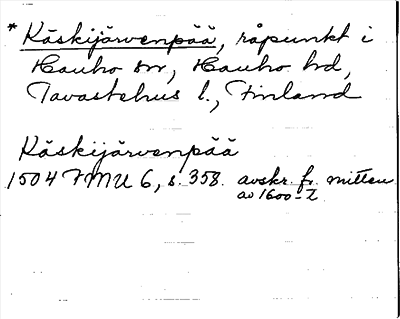 * Käskijärvenpää, råpunkt i
Hauho sn, Hauho hd,
Tavastehus l., Finland
Käskijärvenpää
1504 FMU 6, s. 358. avskr. fr. mitten
av 1600-t.